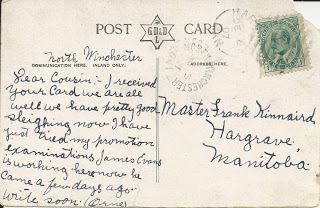 POST CARD
North Winchester
COMMUNICATION HERE. INLAND ONLY.
ADDRESS HERE.
Dear Cousin:- I received
your Card we are all
well we have pretty good
sleighing now I have
just tried my promotion
examinations James Evans
is working here now he
came a few days ago.
write soon (Orne)
Master Frank Kinnaird
Hargrave,
Manitoba